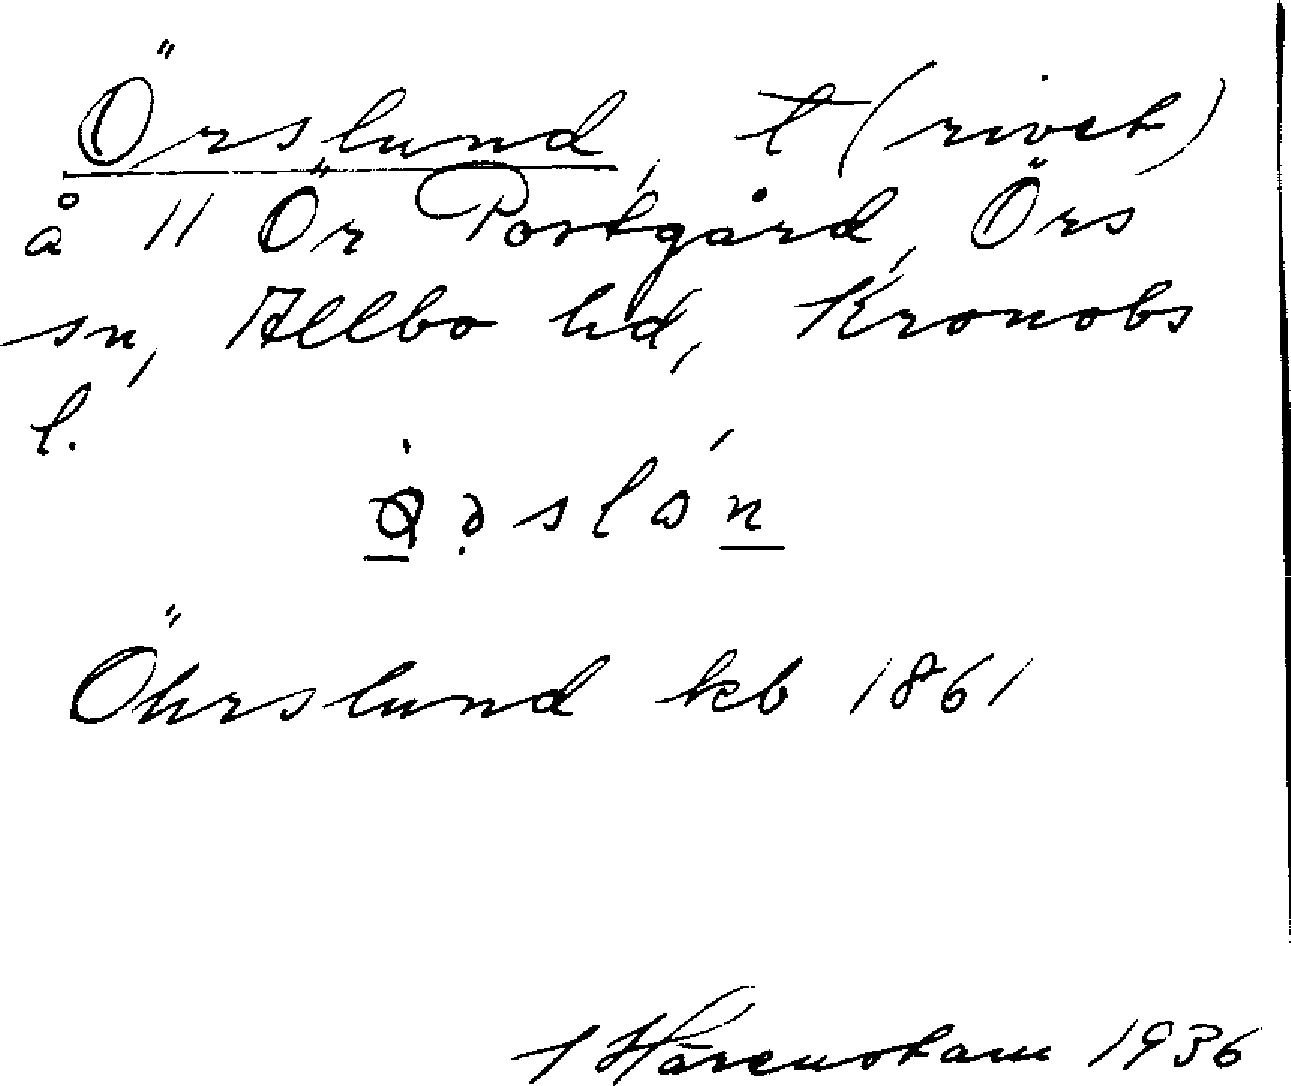 Örslund, t (rivet)
å 11 Ör Postgård, Örs
sn, Allbo hd, Kronobs
l.
Öhrslund kb 1861
1936